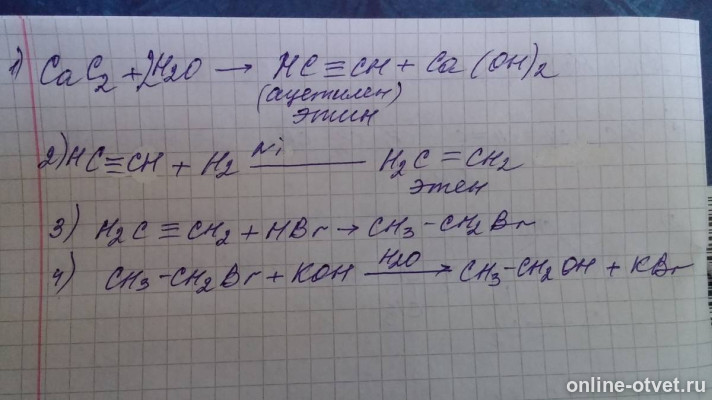 1) CaC2 + 2H2O → HC≡CH + Ca(OH)2
(ацетилен)
этин
2) HC≡CH + H2 Ni H2C=CH2
этен
3) H2C≡CH2 + HBr → CH3-CH2Br
4) CH3-CH2Br + KOH H2O → CH3-CH2OH + KBr
online-otvet.ru